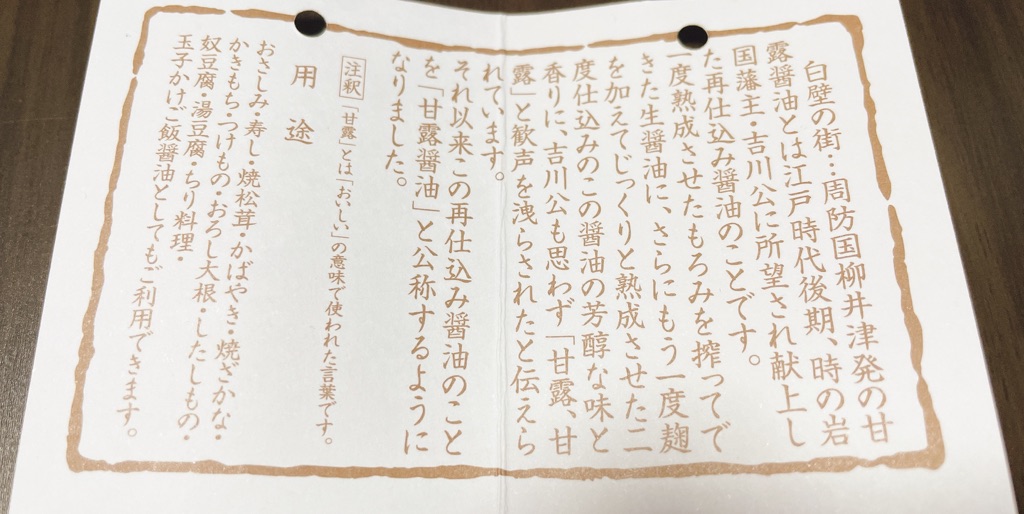 白壁の街…周防国柳井津発の甘
露醤油とは江戸時代後期、時の岩
国藩主・吉川公に所望され献上し
た再仕込み醤油のことです。
一度熟成させたもろみを搾ってで
きた生醤油に、さらにもう一度麹
を加えてじっくりと熟成させた二
度仕込みのこの醤油の芳醇な味と
香りに、吉川公も思わず「甘露、甘
露」と歓声を洩らされたと伝えら
れています。
それ以来この再仕込み醤油のこと
を「甘露醤油」と公称するように
なりました。
注釈 「甘露」とは「おいしい」の意味で使われた言葉です。
用途
おさしみ・寿し・焼松茸・かばやき・焼ざかな・
かきもち・つけもの・おろし大根・したしもの・
奴豆腐・湯豆腐・ちり料理・
玉子かけご飯醤油としてもご利用できます。